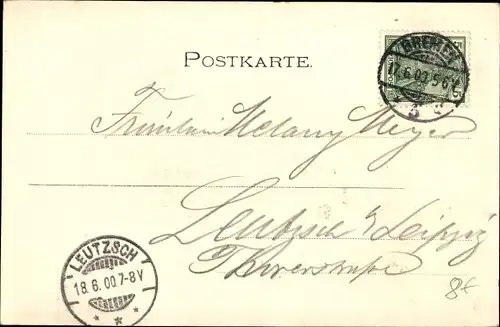 POSTKARTE.
BREMEN
17.6.00 5-6 N
Fräulein Melany Meyer
Leutzsch b/ Leipzig
LEUTZSCH
18.6.00.7-8V
8€